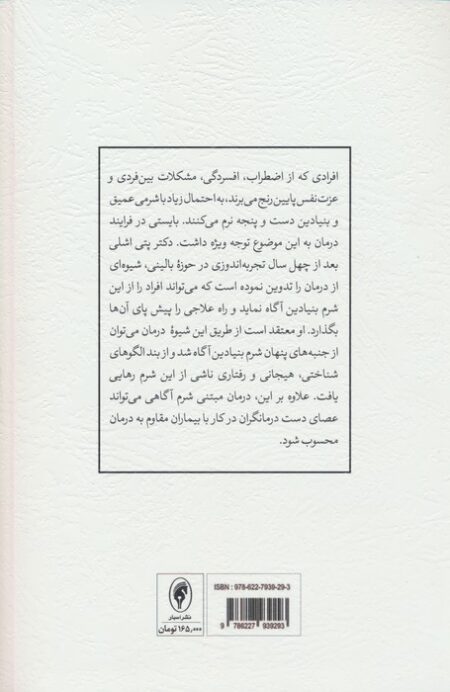 افرادی که از اضطراب، افسردگی، مشکلات بین‌فردی و
عزت‌نفس پایین رنج می‌برند، به احتمال زیاد با شرمی عمیق
و بنیادین دست و پنجه نرم می‌کنند. بایستی در فرایند
درمان به این موضوع توجه ویژه داشت. دکتر پتی اشلی
بعد از چهل سال تجربه‌اندوزی در حوزهٔ بالینی، شیوه‌ای
از درمان را تدوین نموده است که می‌تواند افراد را از این
شرم بنیادین آگاه نماید و راه علاجی را پیش پای آن‌ها
بگذارد. او معتقد است از طریق این شیوهٔ درمان می‌توان
از جنبه‌های پنهان شرم بنیادین آگاه شد و از بند الگوهای
شناختی، هیجانی و رفتاری ناشی از این شرم رهایی
یافت. علاوه بر این، درمان مبتنی شرم آگاهی می‌تواند
عصای دست درمانگران در کار با بیماران مقاوم به درمان
محسوب شود.
ISBN : 978-622-7939-29-3
9 786227 939293
نشر اسبار
۱۶۵,۰۰۰ تومان